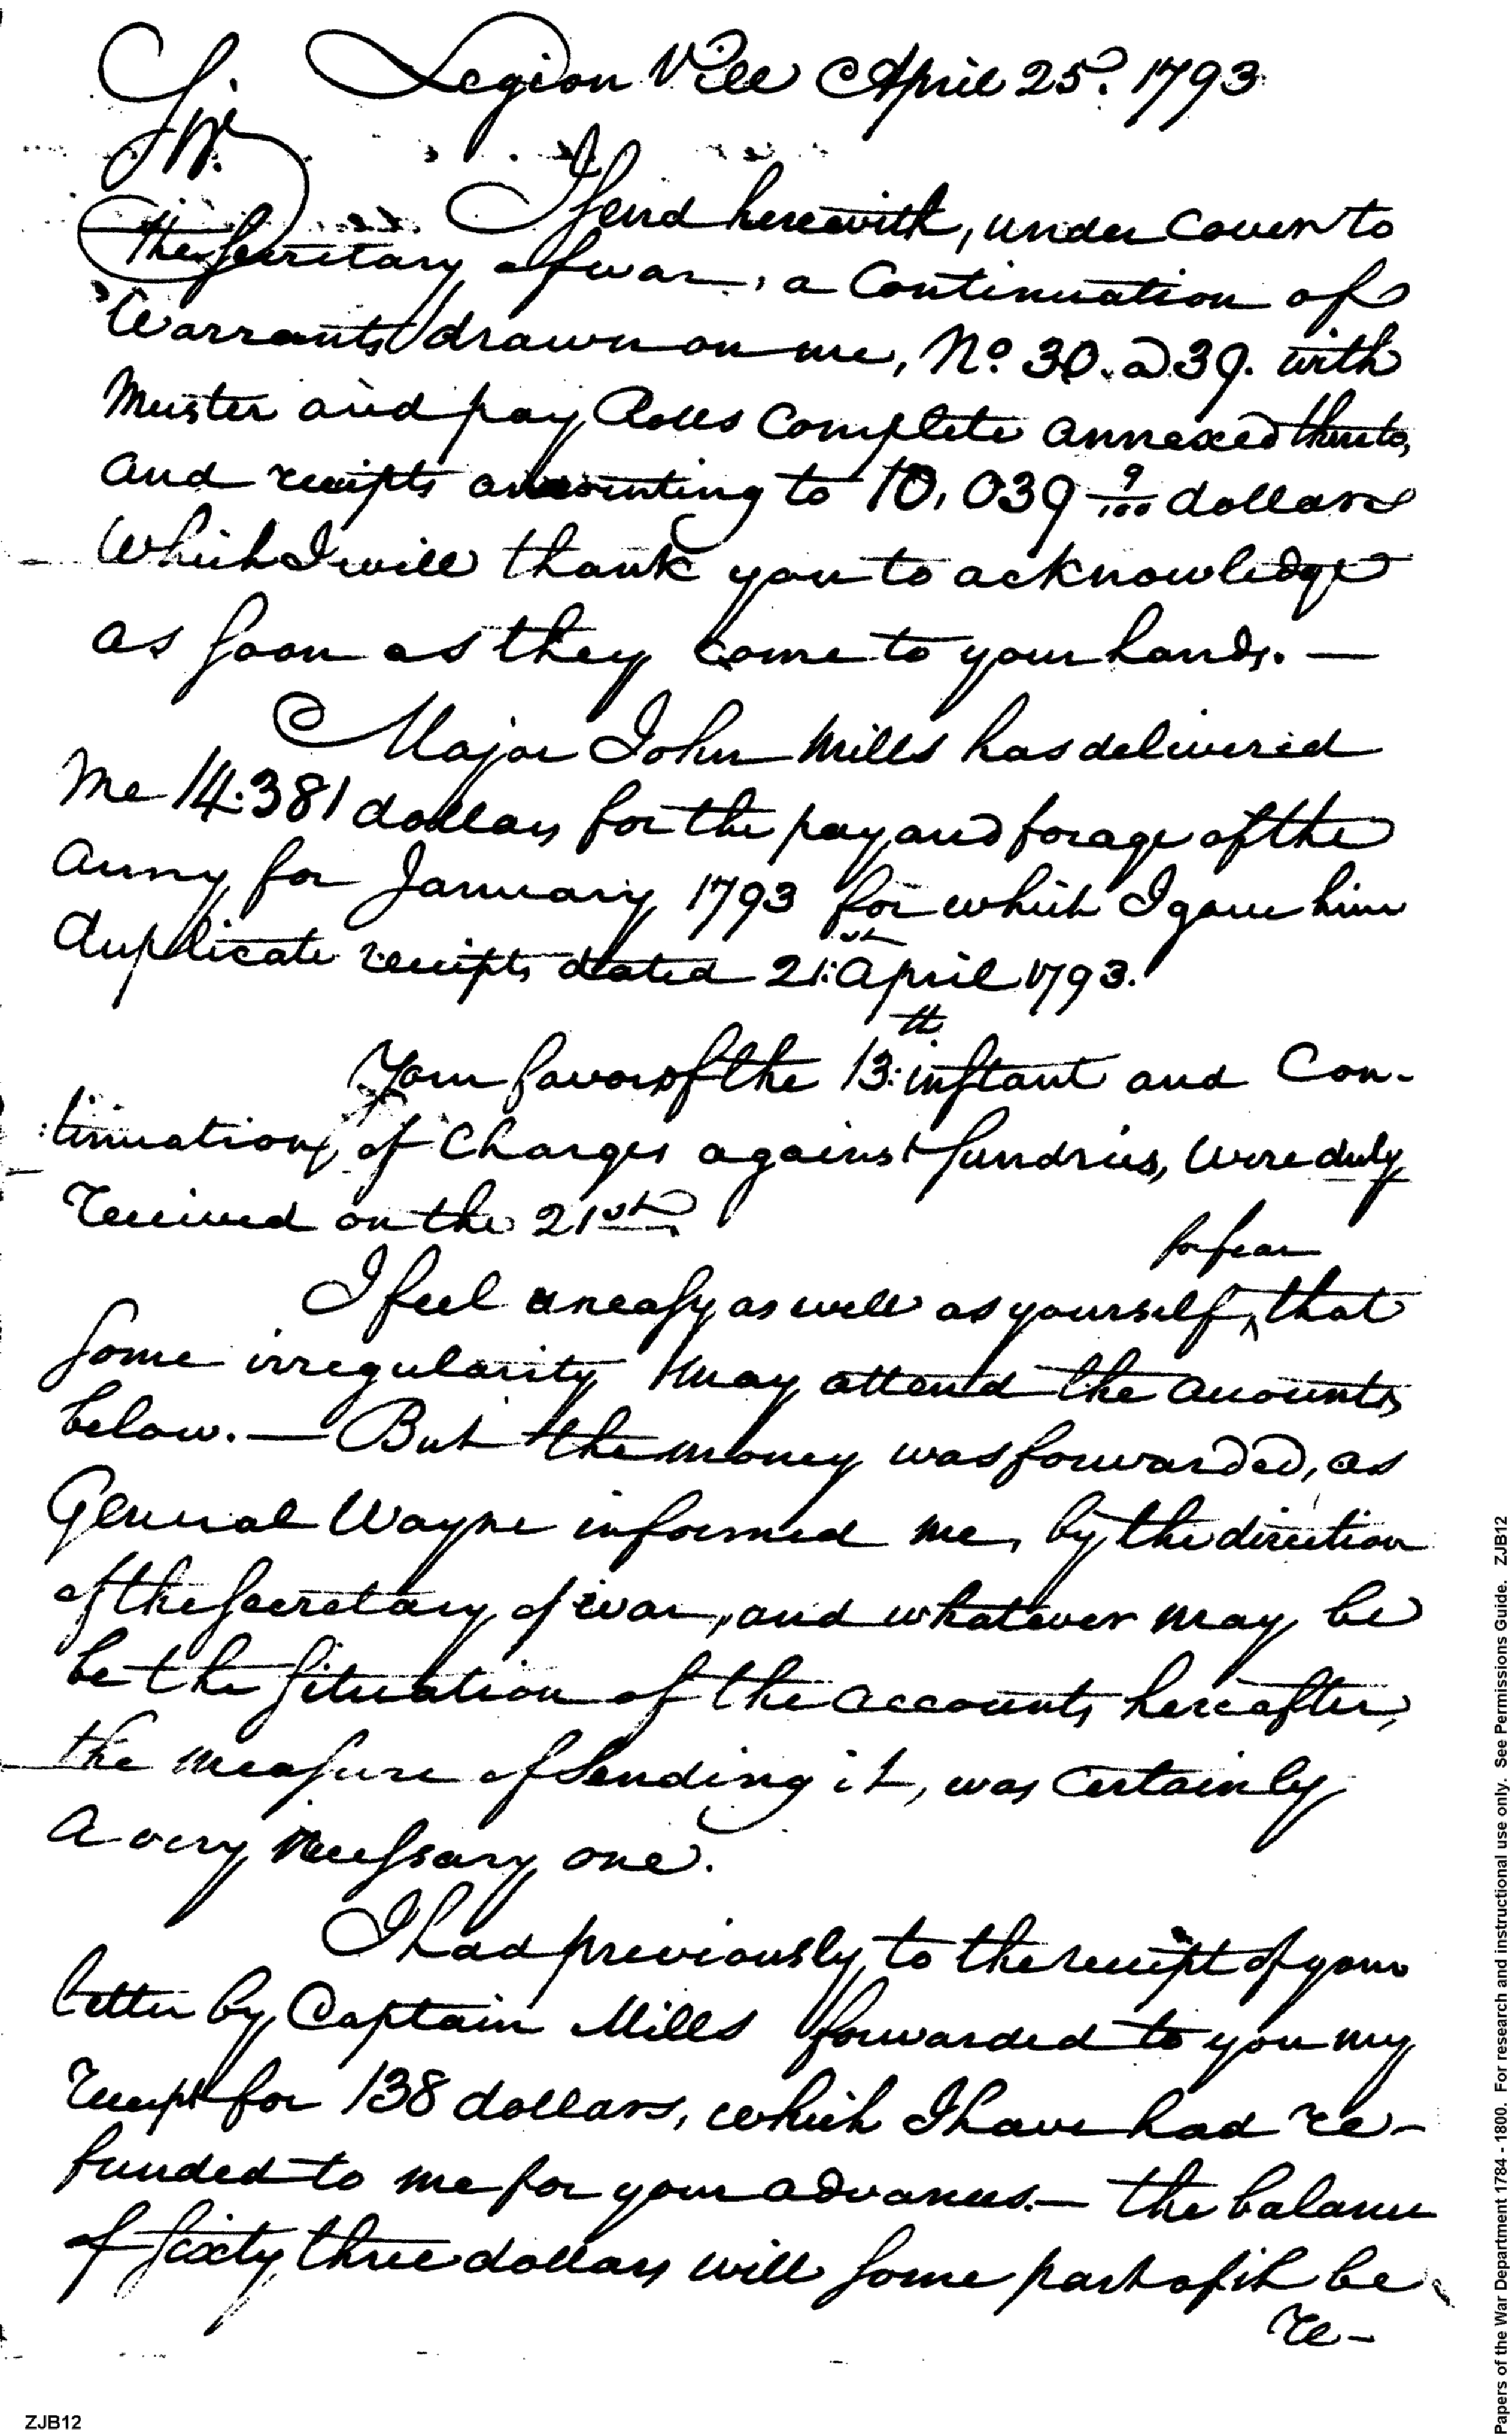 Legion Ville April 25. 1793
Sir.
I send herewith, under cover to
the Secretary of war, a Continuation of
Warrants drawn on me, No. 30. a 39. with
Muster and pay Rolls complete annexed thereto,
and receipts amounting to 10,039 9/100 dollars
Which I will thank you to acknowledge
as soon as they come to your hands. —
Major John Mills has delivered
me 14.381 dollars for the pay and forage of the
army for January 1793 for which I gave him
duplicate receipts dated 21st April 1793.
Your favor of the 13th instant and Con-
tinuation of Charges against sundries, were duly
received on the 21st
I feel uneasy as well as yourself, to fear that
some irregularity may attend the accounts
below. — But the money was forwarded, as
General Wayne informed me, by the direction
of the secretary of war, and whatever may be
be the situation of the accounts hereafter,
the measure of sending it, was certainly
a very necessary one.
I had previously to the receipt of your
letter by Captain Mills forwarded to you my
receipt for 138 dollars, which I have had re-
funded to me for your advances. — the balance
of sixty three dollars will some part of it be
re-
ZJB12
Papers of the War Department 1784 - 1800. For research and instructional use only. See Permissions Guide. ZJB12